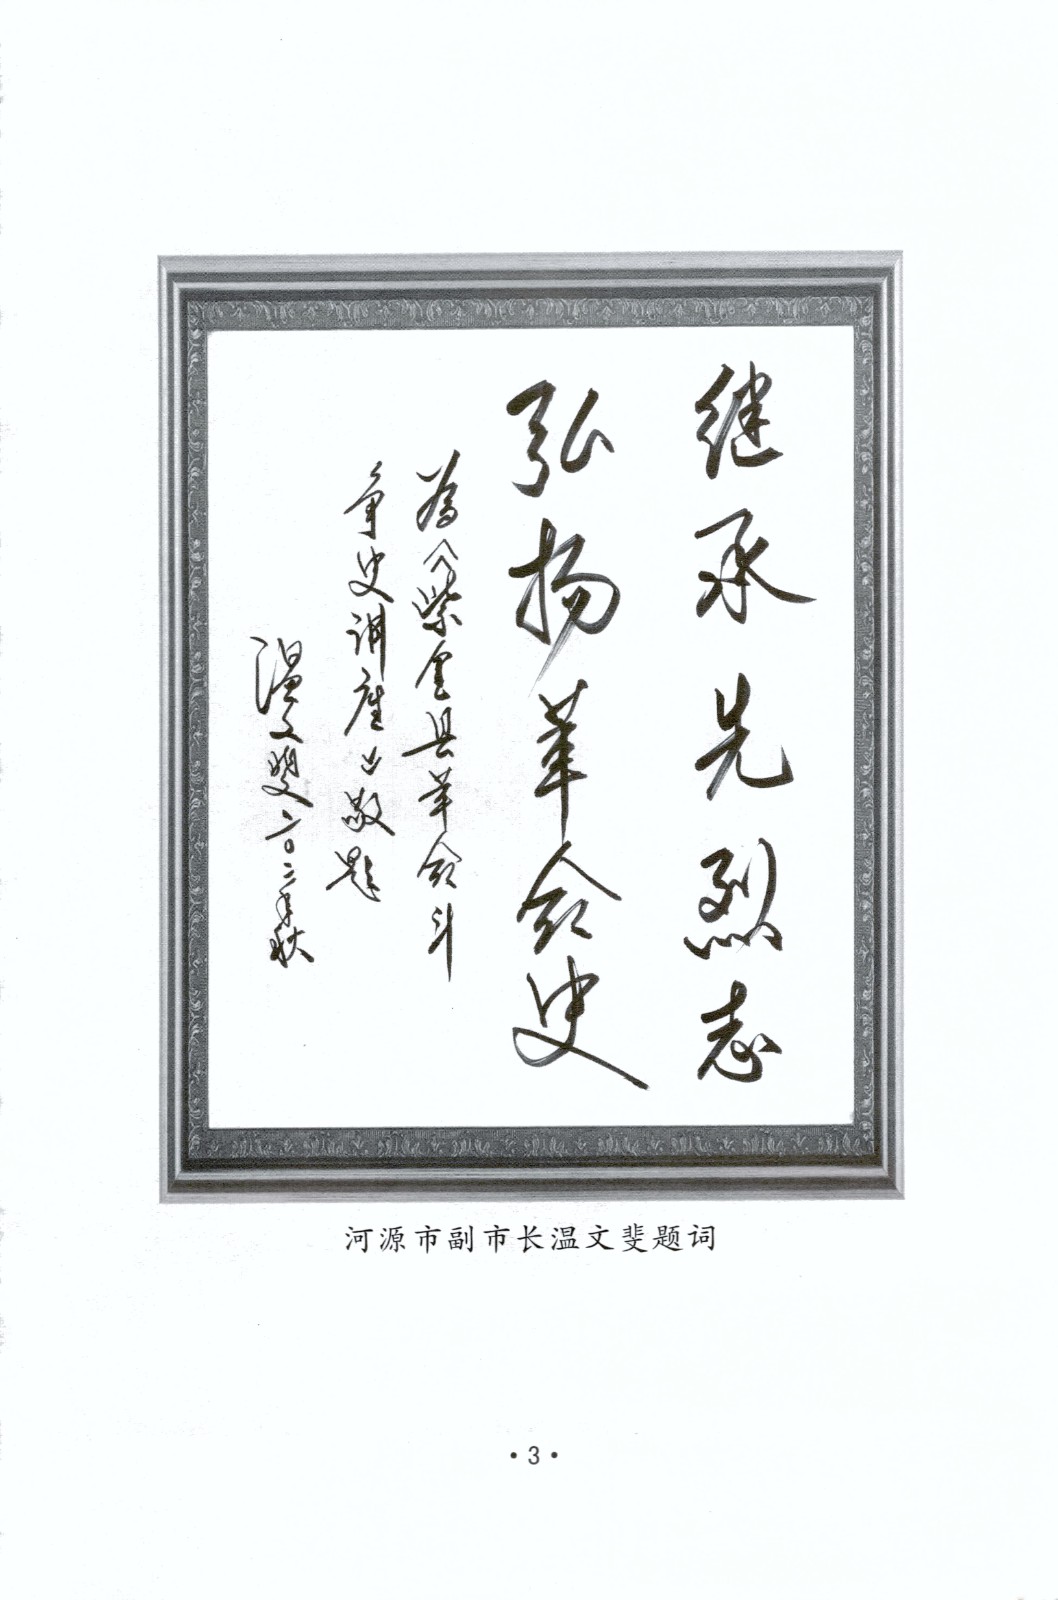 继承先烈志
弘扬革命史
为《紫金县革命斗
争史讲座》敬题
温文斐二〇一二年秋
河源市副市长温文斐题词
• 3 •